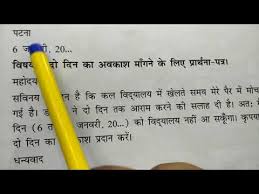 पटना
6 20...
दो दिन का अवकाश माँगने के लिए प्रार्थना-पत्र।
महोदय
सविनय है कि कल विद्यालय में खेलते समय मेरे पैर में मोच
गई है। ने दो दिन तक आराम करने को सलाह दी है। अतः मैं
दिन (6 जनवरी, 20...) को विद्यालय नहीं आ सकूँगा। कृपया
दो दिन का अवकाश प्रदान करें।
धन्यवाद